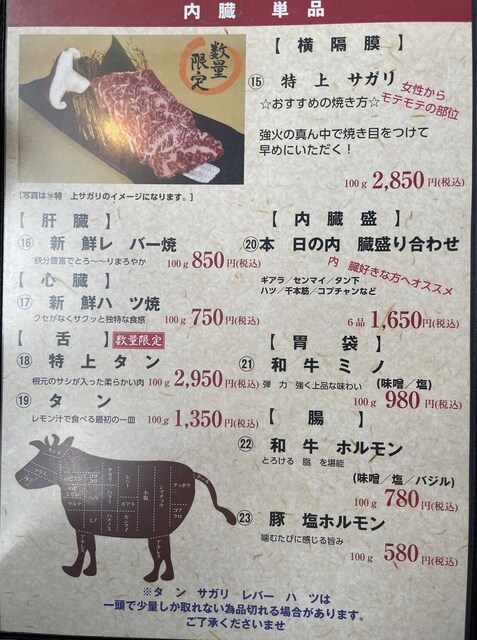 内 臓 単 品
数量限定
【 横 隔 膜 】
⑮ 特 上 サガリ
女性から
モテモテの部位
☆おすすめの焼き方☆
強火の真ん中で焼き目をつけて
早めにいただく！
100g 2,850円(税込)
【 肝 臓 】
⑯ 新 鮮レ バー焼
鉄分豊富でとろ～～りまろやか 100g 850円(税込)
【 心 臓 】
⑰ 新 鮮ハ ツ焼
クセがなくサクッと独特な食感 100g 750円(税込)
【 舌 】 数量限定
⑱ 特 上 タ ン
根元のサシが入った柔らかい肉 100g 2,950円(税込)
⑲ タ ン
レモン汁で食べる最初の一皿 100g 1,350円(税込)
【 内 臓 盛 】
⑳本 日の内 臓盛り合わせ
内 臓好きな方へオススメ
ギアラ／センマイ／タン下
ハツ／千本筋／コプチャンなど
6品 1,650円(税込)
【 胃 袋 】
㉑ 和 牛 ミ ノ
弾 力 強く上品な味わい (味噌／塩)
100g 980円(税込)
【 腸 】
㉒ 和 牛 ホルモン
とろける 脂 を堪能
(味噌／塩／バジル)
100g 780円(税込)
㉓ 豚 塩ホルモン
噛むたびに感じる旨み
100g 580円(税込)
※タ ン サガリ レバー ハ ツは
一頭で少量しか取れない為品切れる場合があります。
ご了承くださいませ